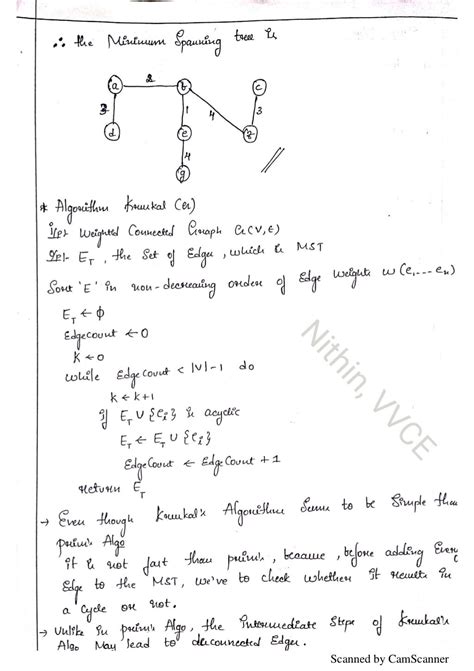 ∴ the Minimum Spanning tree is
a 2 b c
3 1 4 3
d e
4
g
* Algorithm Kruskal (G)
I/p:- Weighted Connected Graph G(V,E)
O/p:- E_T, the Set of Edges, which is MST
Sort 'E' in non-decreasing order of Edge weights w(e,...
E_T ← ϕ
Edgecount ← 0
K ← 0
while EdgeCount < |V|-1 do
k ← k+1
if E_T ∪ {e_i} is acyclic
E_T ← E_T ∪ {e_i}
EdgeCount ← EdgeCount + 1
return E_T
→ Even though Kruskal's Algorithm Seem to be Simple than
prim's Algo
it is not fast than prim's, because, before adding Every
Edge to the MST, we've to check whether it results in
a cycle or not.
→ Unlike in prim's Algo, the intermediate Steps of Kruskal's
Algo May lead to disconnected Edges.
Nithin, VVCE
Scanned by CamScanner